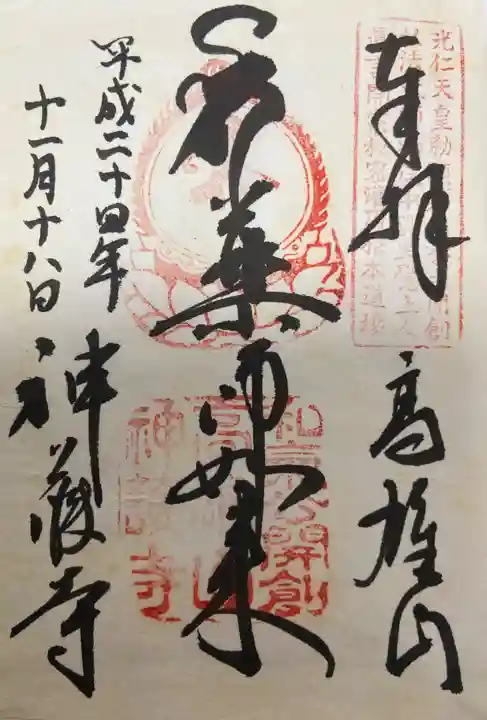 奉拝
高雄山
薬師如来
平成二十四年
十一月十八日
神護寺
光仁天皇勅
和気公開創
高雄山
神護寺